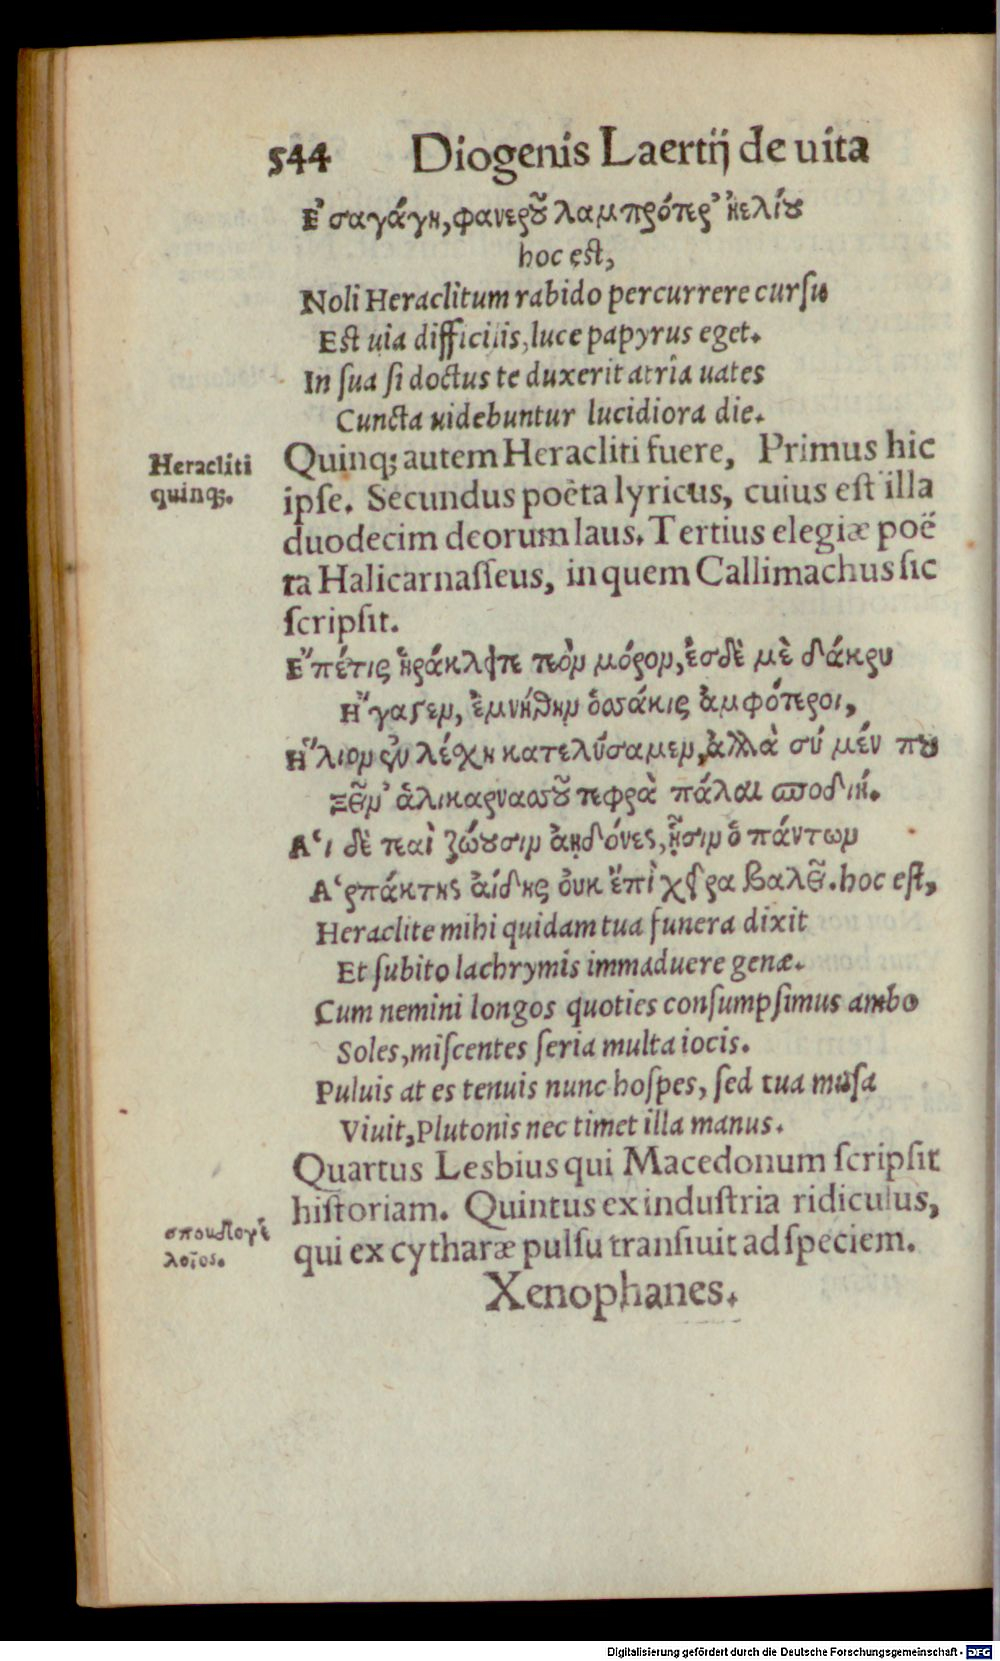 544 Diogenis Laertij de uita
Ε᾽σαγάγη, φανεροῦ λαμπρότερ᾽ ἠελίου
hoc est,
Noli Heraclitum rabido percurrere cursu
Est uia difficilis, luce papyrus eget.
In sua si doctus te duxerit atria uates
Cuncta uidebuntur lucidiora die.
Heracliti
quinq;.
Quinq; autem Heracliti fuere, Primus hic
ipse. Secundus poëta lyricus, cuius est illa
duodecim deorum laus. Tertius elegiæ poë
ta Halicarnasseus, in quem Callimachus sic
scripsit.
Εἴπέ τις ἡράκλειτε τεὸν μόρον, ἐς δὲ μὲ δάκρυ
Ἤγαγεν, ἐμνήσθην ὁσσάκις ἀμφότεροι,
Ἥλιον ἐν λέσχη κατελύσαμεν, ἀλλὰ σύ μέν που
Ξεῖν᾽ ἁλικαρνασσοῦ τεφρὰ πάλαι σποδιή.
Αἱ δὲ τεαὶ ζώουσιν ἀηδόνες, ᾗσιν ὁ πάντων
Ἁρπάκτης ἀίδης οὐκ ἔπὶ χεῖρα βαλεῖ. hoc est,
Heraclite mihi quidam tua funera dixit
Et subito lachrymis immaduere genæ.
Cum nemini longos quoties consumpsimus ambo
Soles, miscentes seria multa iocis.
Puluis at es tenuis nunc hospes, sed tua musa
Viuit, Plutonis nec timet illa manus.
Quartus Lesbius qui Macedonum scripsit
historiam. Quintus ex industria ridiculus,
qui ex cytharæ pulsu transiuit ad speciem.
σπουδογέ
λοῖος.
Xenophanes.
Digitalisierung gefördert durch die Deutsche Forschungsgemeinschaft - DFG